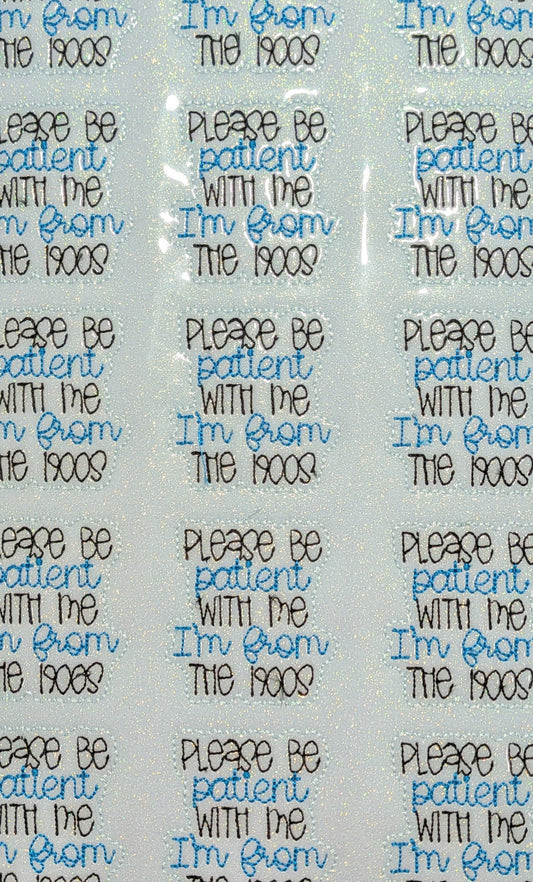 I'm from
THE 1900S
I'm from
THE 1900S
I'm from
THE 1900S
PLEASE BE
patient
WITH ME
I'm from
THE 1900S
PLEASE BE
patient
WITH ME
I'm from
THE 1900S
PLEASE BE
patient
WITH ME
I'm from
THE 1900S
PLEASE BE
patient
WITH ME
I'm from
THE 1900S
PLEASE BE
patient
WITH ME
I'm from
THE 1900S
PLEASE BE
patient
WITH ME
I'm from
THE 1900S
PLEASE BE
patient
WITH ME
I'm from
THE 1900S
PLEASE BE
patient
WITH ME
I'm from
THE 1900S
PLEASE BE
patient
WITH ME
I'm from
THE 1900S
PLEASE BE
patient
WITH ME
I'm from
PLEASE BE
patient
WITH ME
I'm from
PLEASE BE
patient
WITH ME
I'm from